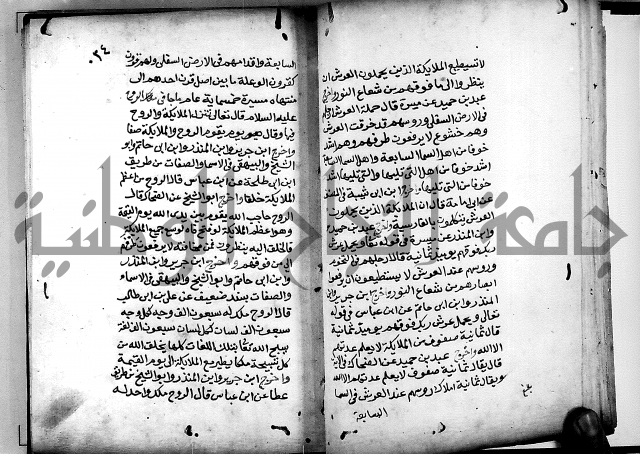 لا تستطيع الملايكة الذين يحملون العرش ان
ينظروا الى ما فوقهم من شعاع النور واخرج
عبد بن حميد عن ميسرة قال حملة العرش ارجلهم
في الارض السفلى وروسهم قد خرقت العرش
وهم خشوع لا يرفعون طرفهم وهم اشد
خوفا من اهل السما السابعة واهل السما السابعة
اشد خوفا من اهل التي تليها والتي تليها اشد
خوفا من التي تليها واخرج ابن ابي شيبة في
عن ابي امامة قال ان الملايكة الذين يحملون
العرش يتكلمون بالفارسية واخرج عبد بن حميد
وابن المنذر عن ميسرة في قوله تعالى ويحمل عرش
ربك فوقهم يوميذ ثمانية قال ارجلهم في التخوم
وروسهم عند العرش لا يستطيعون ان يرفعوا
ابصارهم من شعاع النور واخرج ابن جرير وابن
المنذر وابن ابي حاتم عن ابن عباس في قوله
تعالى ويحمل عرش ربك فوقهم يوميذ ثمانية
قال ثمانية صفوف من الملايكة لا يعلم عدتهم
الا الله واخرج عبد بن حميد عن الضحاك في الاية
قال يقال ثمانية صفوف لا يعلم عدتهم الا الله
ويقال ثمانية املاك روسهم عند العرش في السما
السابعة
بلغ
٣٤
السابعة واقدامهم في الارض السفلى ولهم قرون
كقرون الوعلة ما بين اصل قرن احدهم الى
منتهاه مسيرة خمسماية عام ما جا في الروح
عليه السلام قال تعالى تنزل الملايكة والروح
فيها وقال يوم يقوم الروح والملايكة صفا
واخرج ابن جرير وابن المنذر وابن ابي حاتم وابو
الشيخ والبيهقي في الاسما والصفات من طريق
ابن ابي طلحة عن ابن عباس قال الروح من اعظم
الملايكة خلقا واخرج ابو الشيخ عن الضحاك قال
الروح حاجب الله يقوم بين يدى الله يوم القيمة
وهو اعظم الملايكة لو فتح فاه لوسع جميع الملايكة
فالخلق اليه ينظرون فمن مخافته لا يرفعون طرفهم
الى من فوقهم واخرج ابن جرير وابن المنذر
وابن ابي حاتم وابو الشيخ والبيهقي في الاسماء
والصفات بسند ضعيف عن علي بن ابي طالب
قال الروح ملك له سبعون الف وجه لكل وجه
سبعون الف لسان لكل لسان سبعون الف لغة
يسبح الله تعالى بتلك اللغات كلها يخلق الله من
كل تسبيحة ملكا يطير مع الملايكة الى يوم القيمة
واخرج ابن جرير وابن المنذر وابو الشيخ من طريق
عطا عن ابن عباس قال الروح ملك واحد له
جامعة النجاح الوطنية